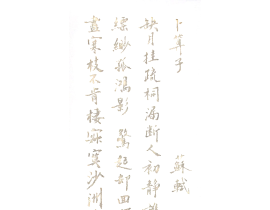 卜筭子 蘇軾
缺月挂疏桐漏断人初静誰
縹緲孤鴻影 驚起却回
盡寒枝不肯棲寂寞沙洲